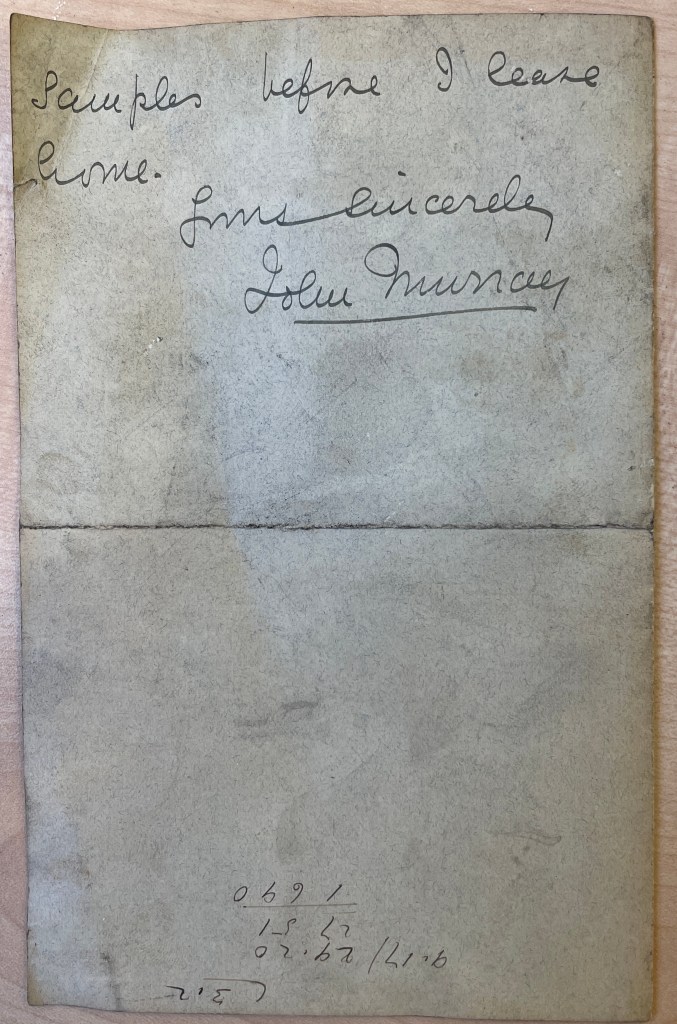 Samples before I leave
home.
Yours sincerely
John Murray
3.2
9.17) 29.20
27 51
1 6 9 0